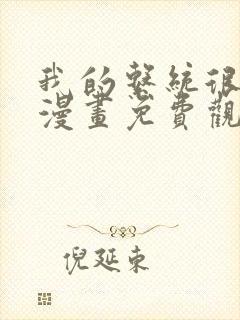 我的系統很
漫畫免費觀
倪延東